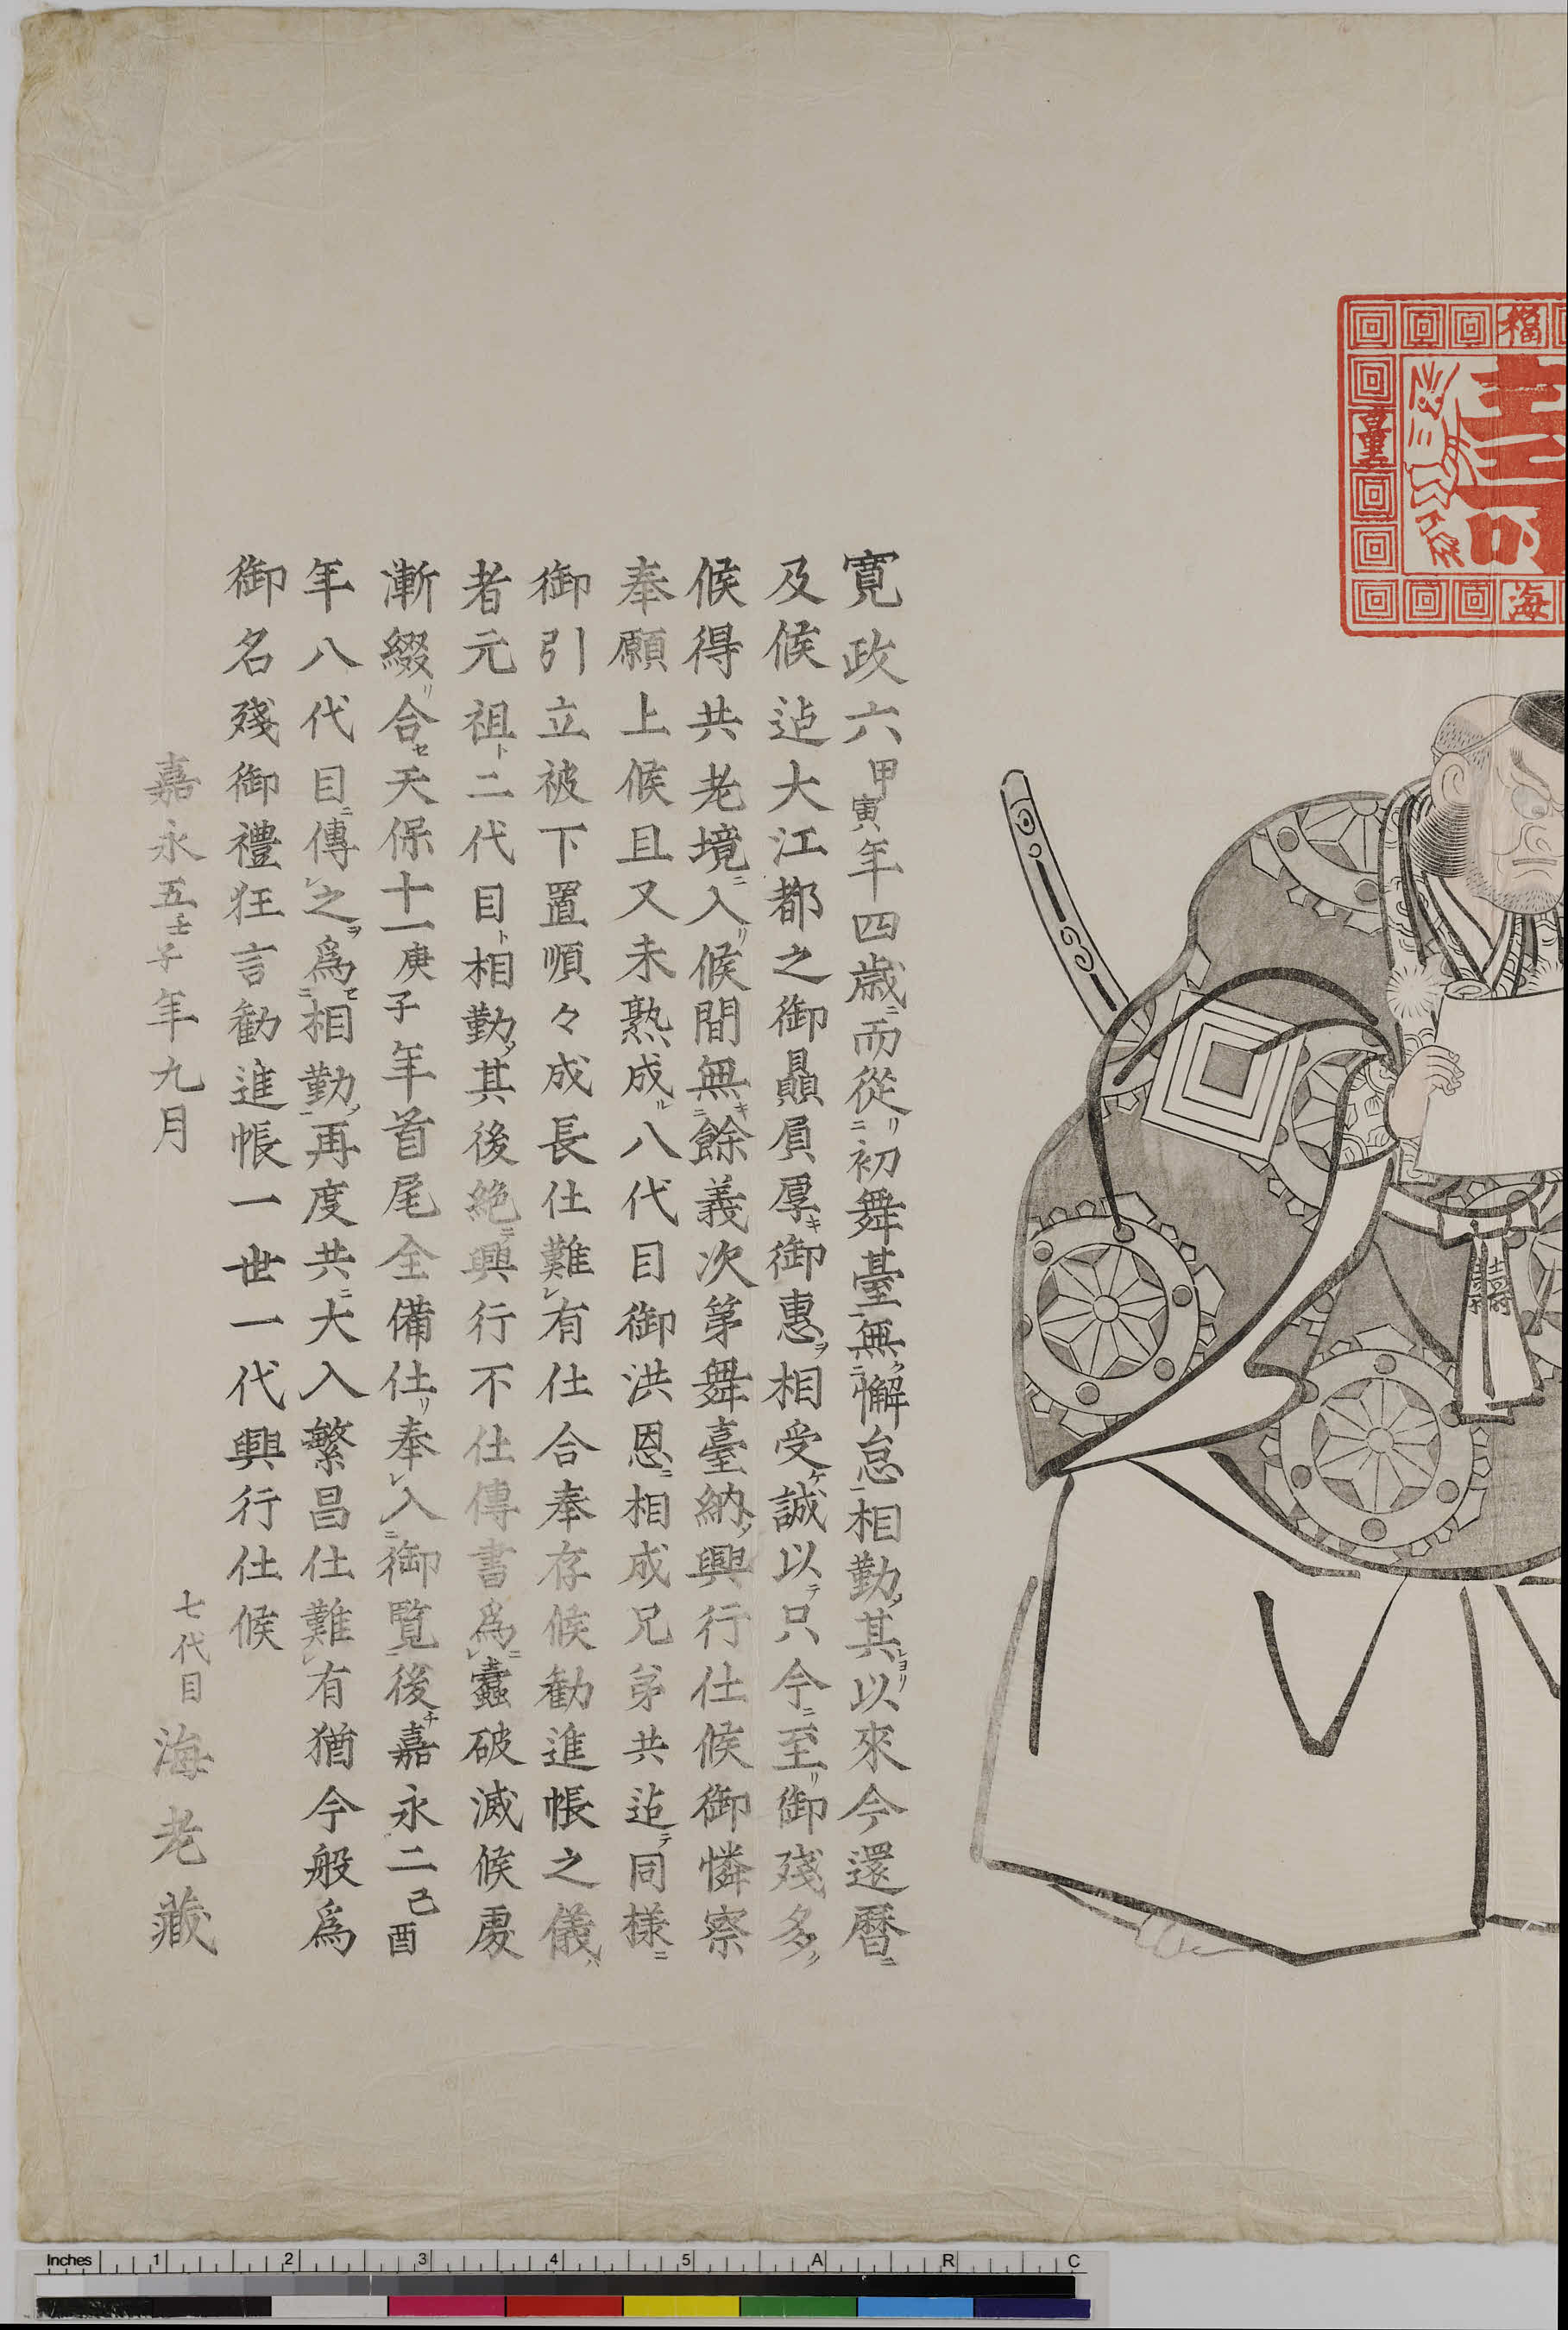 寛政六甲寅年四歳ニ而從リニ初舞臺一無クニ懈怠一相勤メ其レヨリ以來今還暦ニ
及候迠大江都之御贔屓厚キ御惠ヲ相受ケ誠以テ只今ニ至リ御殘多ク
候得共老境ニ入リ候間無キニ餘義次第舞臺納メ興行仕候御憐察
奉願上候且又未熟成ル八代目御洪恩ニ相成兄弟共迠テ同様ニ
御引立被下置順々成長仕難レ有仕合奉存候勧進帳之儀ハ
者元祖ト二代目ト相勤メ其後絶ニ興行不仕傳書爲ニレ蠧破滅候處
漸綴リ合セ天保十一庚子年首尾全備仕リ奉レ入ニ御覧一後チ嘉永二己酉
年八代目ニ傳レ之ヲ爲セニ相勤メ一再度共ニ大入繁昌仕難レ有猶今般爲
御名殘御禮狂言勧進帳一世一代興行仕候
嘉永五壬子年九月
七代目 海老藏
福
壽
海